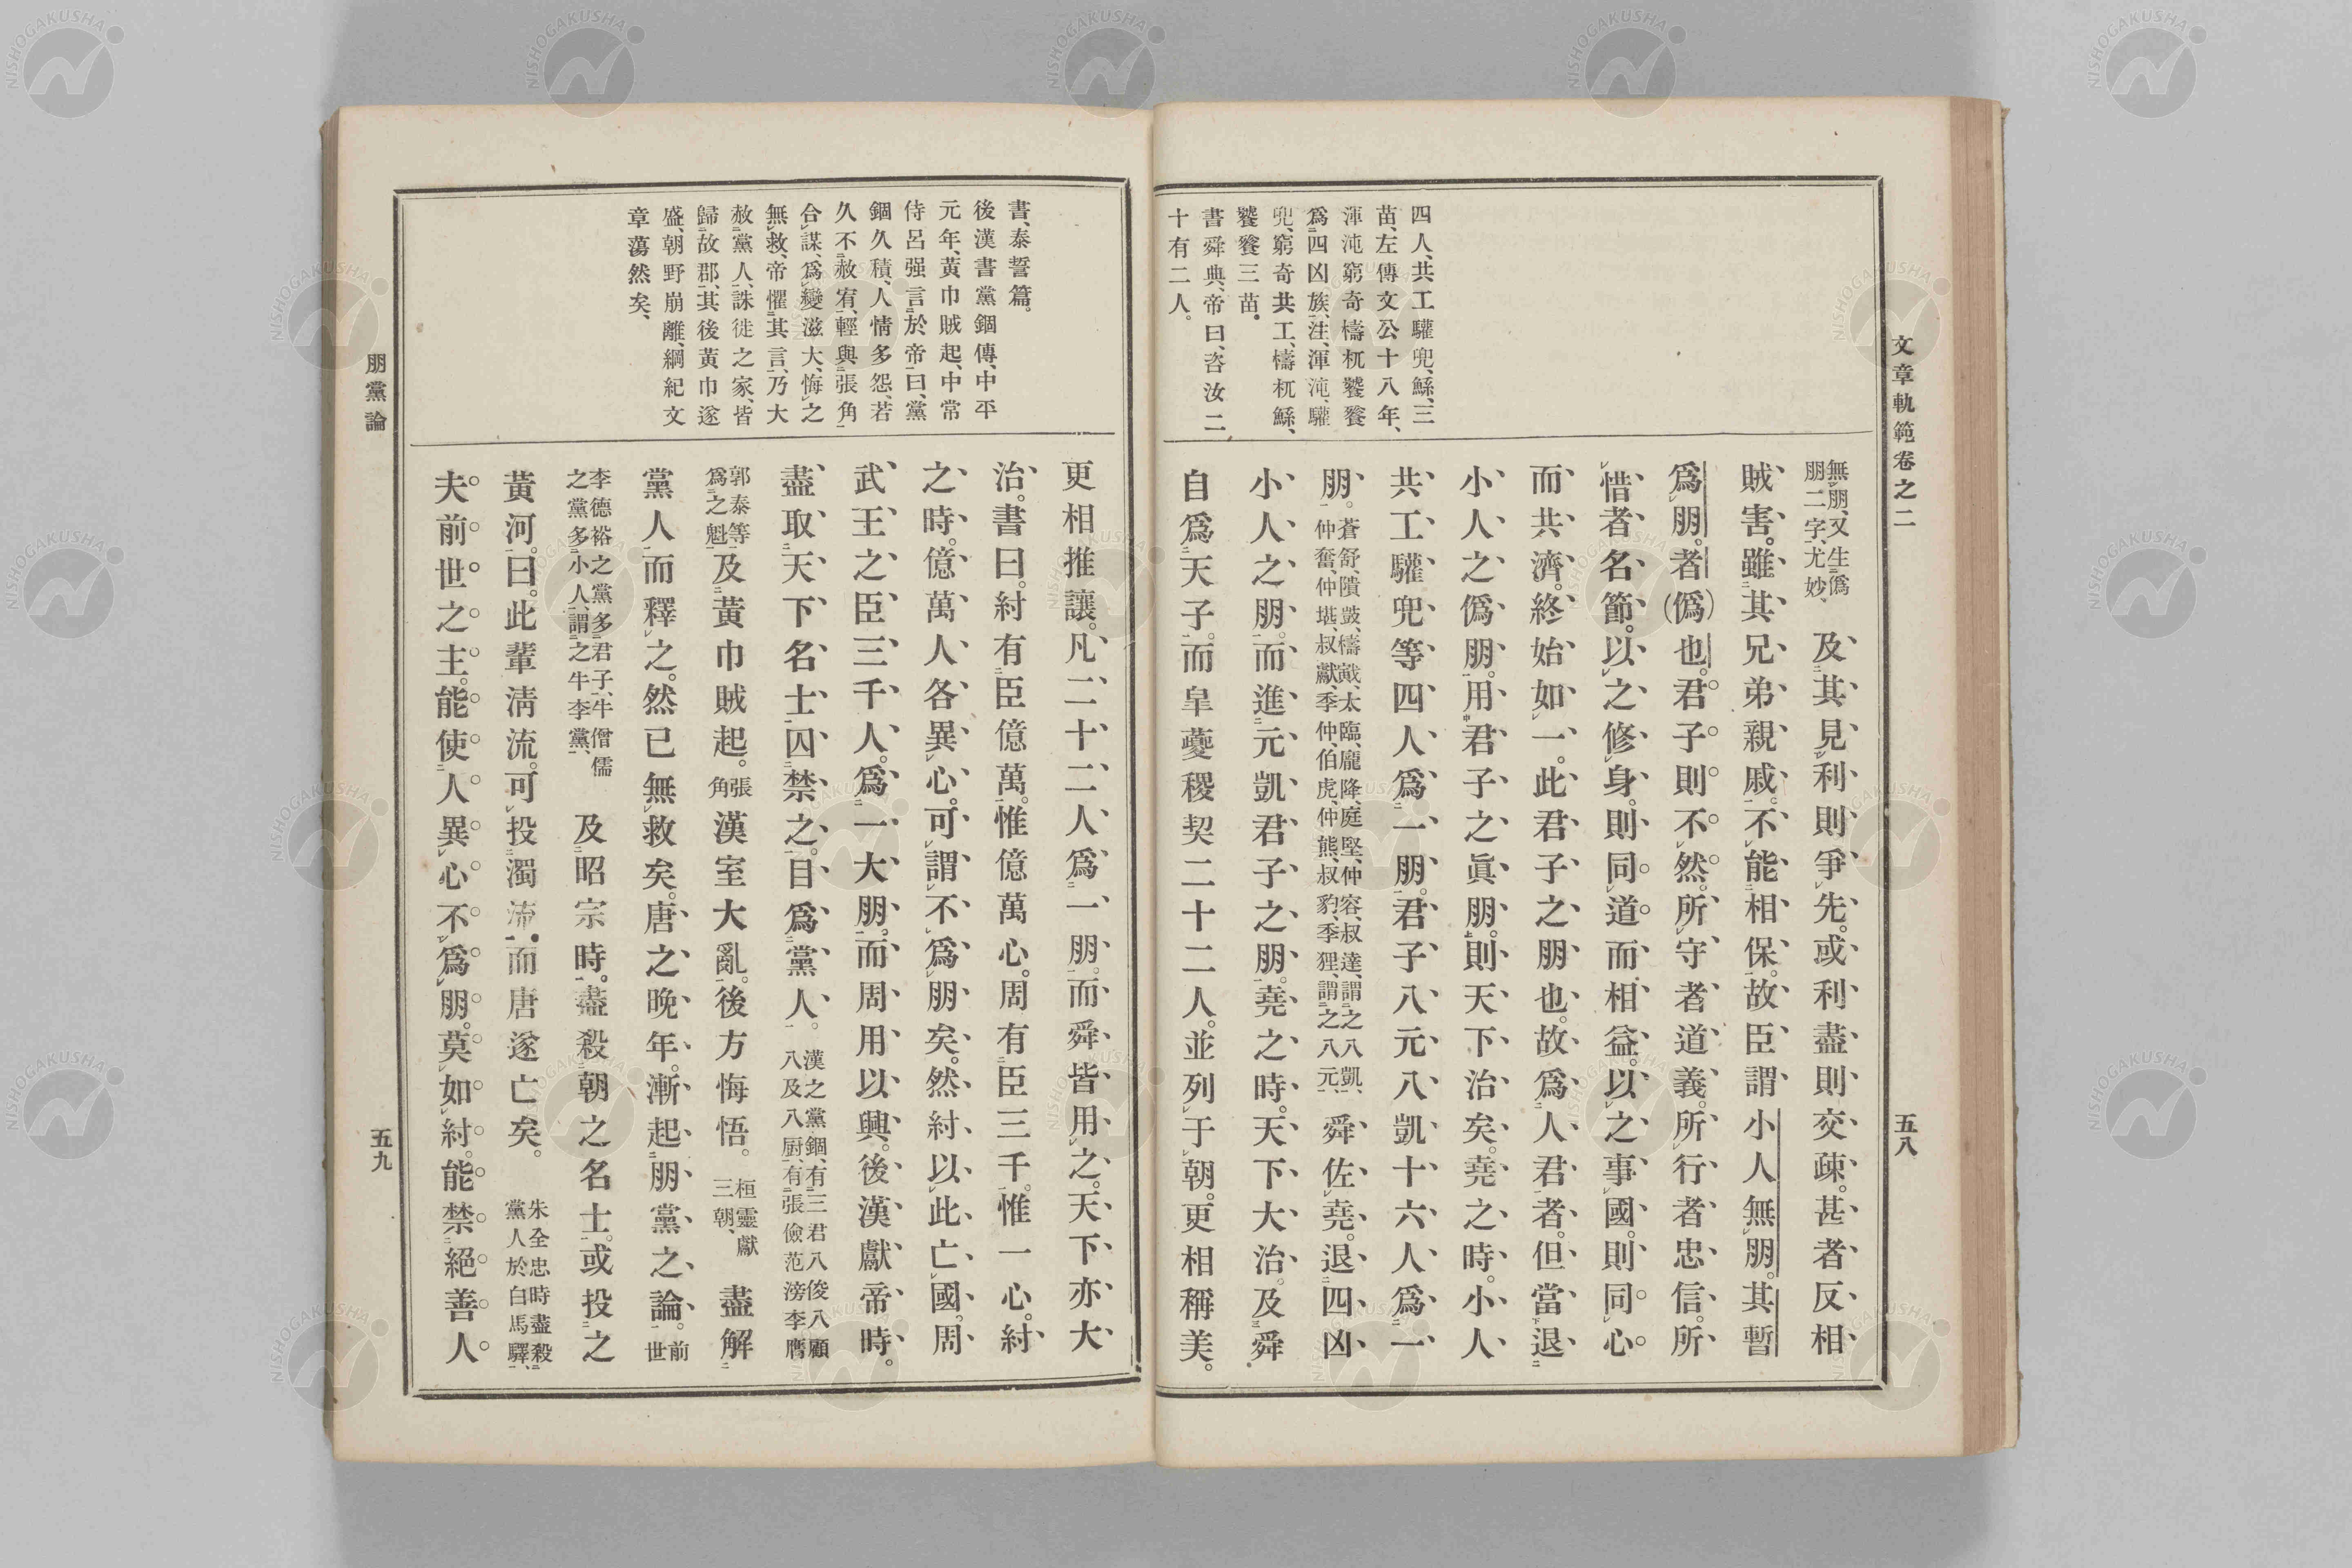 文章軌範卷之二
五八
四人、共工驩兜、鯀、三
苗、左傳文公十八年、
渾沌窮奇檮杌饕餮
爲四凶族、注、渾沌、驩
兜、窮奇共工、檮杌鯀、
饕餮三苗。
書舜典、帝曰、咨汝二
十有二人。
無朋、又生僞
朋二字、尤妙、
及其見利則爭先。或利盡則交疎。甚者反相
賊害。雖其兄弟親戚。不能相保。故臣謂小人無朋。其暫
爲朋。者(僞)也。君子則不然。所守者道義。所行者忠信。所
惜者名節。以之修身。則同道而相益。以之事國。則同心
而共濟。終始如一。此君子之朋也。故爲人君者。但當退
小人之僞朋。用君子之眞朋。則天下治矣。堯之時。小人
共工驩兜等四人爲一朋。君子八元八凱十六人爲一
朋。
蒼舒、隤敱、檮戭、太臨、龐降、庭堅、仲容、叔達、謂之八凱、
仲奮、仲堪、叔獻、季仲、伯虎、仲熊、叔豹、季狸、謂之八元、
舜佐堯。退四凶
小人之朋。而進元凱君子之朋。堯之時。天下大治。及舜
自爲天子。而皐夔稷契二十二人。並列于朝。更相稱美。
書、泰誓篇。
後漢書黨錮傳、中平
元年、黃巾賊起、中常
侍呂强言於帝曰、黨
錮久積、人情多怨、若
久不赦宥、輕與張角
合謀、爲變滋大、悔之
無救、帝懼其言、乃大
赦黨人、誅徙之家、皆
歸故郡、其後黃巾遂
盛、朝野崩離、綱紀文
章蕩然矣、
更相推讓。凡二十二人爲一朋。而舜皆用之。天下亦大
治。書曰。紂有臣億萬。惟億萬心。周有臣三千。惟一心。紂
之時。億萬人各異心。可謂不爲朋矣。然紂以此亡國。周
武王之臣三千人。爲一大朋。而周用以興。後漢獻帝時。
盡取天下名士囚禁之。目爲黨人。
漢之黨錮、有三君八俊八顧
八及八厨、有張儉范滂李膺
郭泰等
爲之魁
及黃巾賊起。
張
角
漢室大亂。後方悔悟。
桓靈獻
三朝、
盡解
黨人而釋之。然已無救矣。唐之晚年。漸起朋黨之論。
前
世
李德裕之黨多君子、牛僧儒
之黨多小人、謂之牛李黨、
及昭宗時。盡殺朝之名士。或投之
黃河。曰。此輩淸流。可投濁流。而唐遂亡矣。
朱全忠時盡殺
黨人於白馬驛、
夫前世之主。能使人異心不爲朋。莫如紂。能禁絕善人
朋黨論
五九